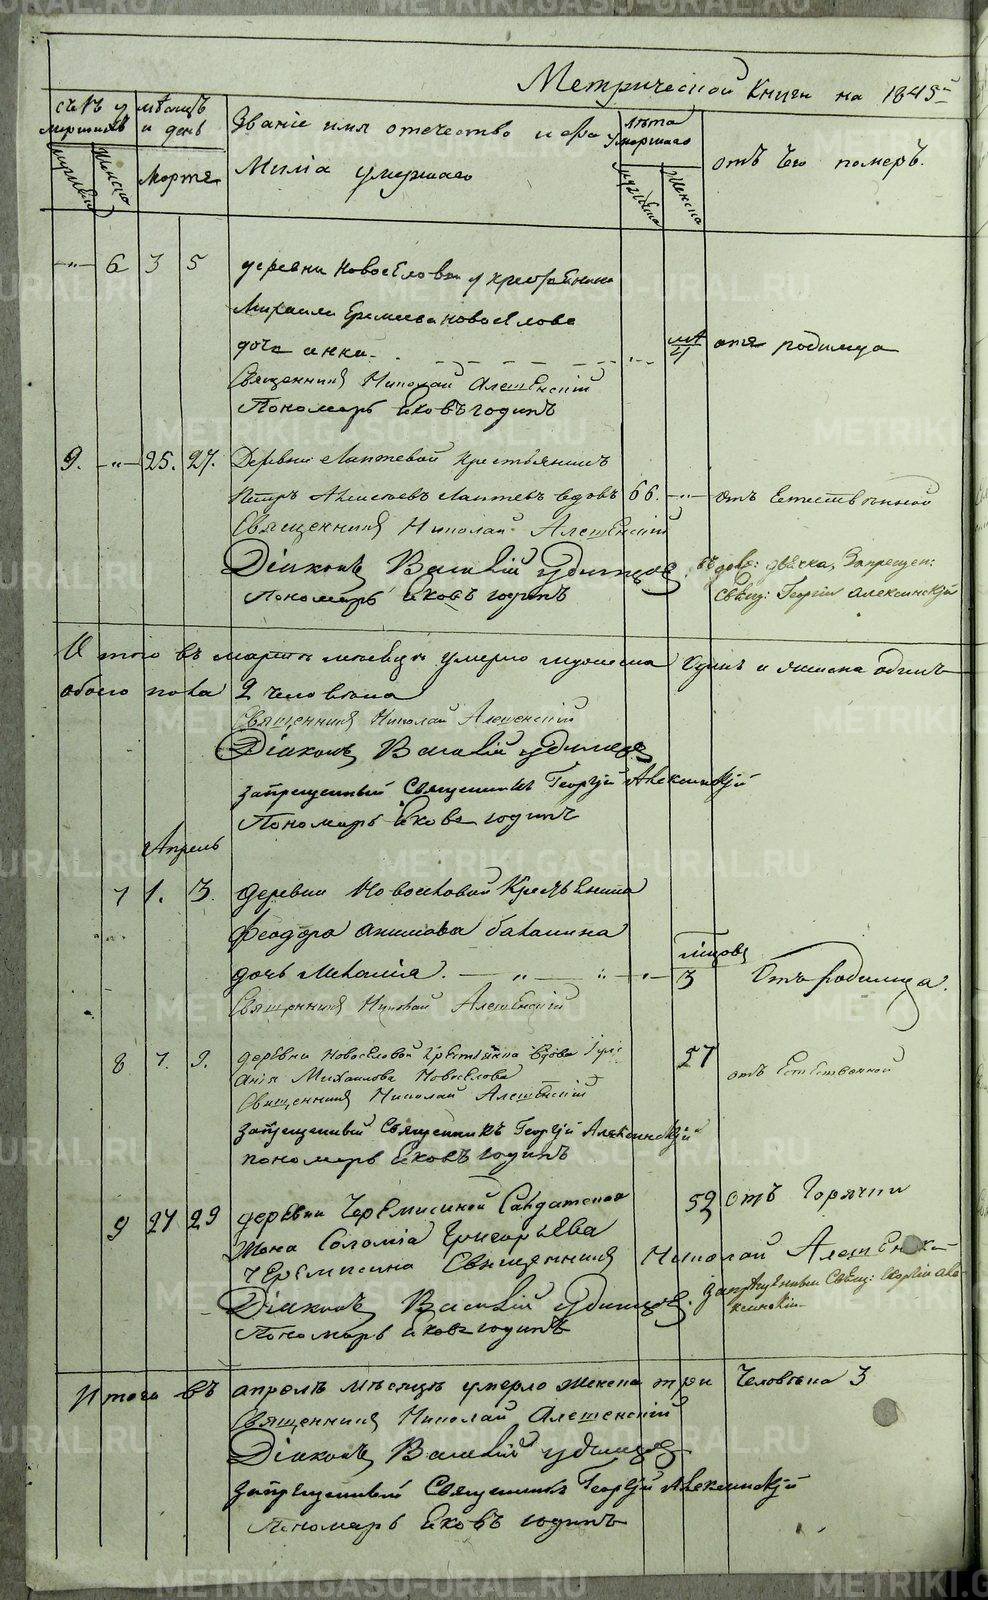 Метрической Книги на 1845й
счетъ умершихъ
мѣсяцъ и день
Званіе имя отечество и фамилія умершаго
лѣта умершаго
отъ чего померъ.
Мужска
Женска
Марте
Мужска
Женска
6 3 5 деревни Новоселовой крестьянина
Михаила Еремеева Новоселова
дочь анна
4 отъ родимца
Священникъ Николай Алешенскій
Пономарь Яковъ Годинъ
9. 25. 27. Деревни Лаптевой крестьянинъ
Петръ Лаптевъ вдовъ 66. отъ Естественной
Священникъ Николай Алешенскій
Діаконъ Василій Удинцов
Запрещен:
Пономарь Яковъ Годинъ
Свящ: Георгій алексинскій
Итого въ марте месяце умерло мужеска одинъ и женска одинъ
обоего пола 2 человека
Священникъ Николай Алешенскій
Діаконъ Василій Удинцов
запрещенный Священникъ Георгій Алексинскій
Пономарь Яковъ Годинъ
Апрель
7 1. 3. деревни Новоселовой Крестьянина
Феодора
дочь Меланія.
месяцов 3 Отъ родимца.
Священникъ Николай Алешенскій
8 7. 9. деревни Новоселовой Крестьянка вдова
Михаилова Новоселова
57 отъ Естественной
Священникъ Николай Алешенскій
запрещенный Священникъ Георгій Алексинскій
пономарь Яковъ Годинъ
9 27 29 деревни Черемисиной Салдатская 52 отъ Горячки
Жена Соломія Григорьева
Черемисина Священникъ Николай Алешенскій
Запрещенный Свящ: Георгій Алексинскій
Діаконъ Василій Удинцов.
Пономарь Яковъ Годинъ
Итого въ апреле месяце умерло женска три Человека 3
Священникъ Николай Алешенскій
Діаконъ Василій Удинцов
запрещенный Священникъ Георгій Алексинскій
Пономарь Яковъ Годинъ
METRIKI.GASO-URAL.RU